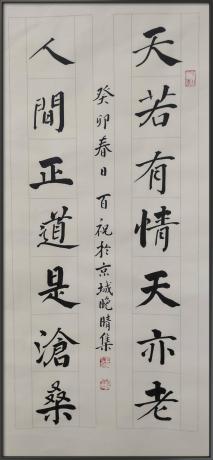 天若有情天亦老
人間正道是滄桑
癸卯春日百祝於京城晚晴集